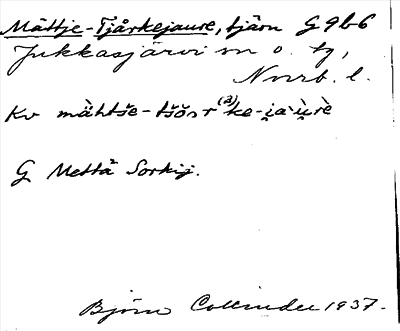 Mättje-Tjårkejaure, tjärn G 9b6
Jukkasjärvi sn o. tg,
Norrb. l.
Kv mä̀htše-tšŏnr(ə)ke-i̯a·ùrè
G Mettä Sorkij.
Björn Collinder 1937.